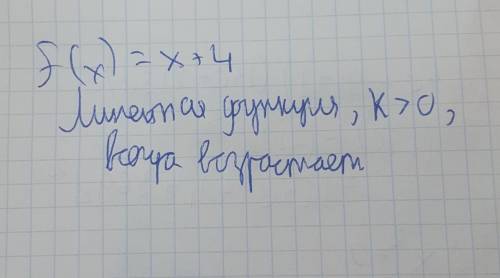 f(x) = x+4
Линейная функция, K>0,
всегда возрастает